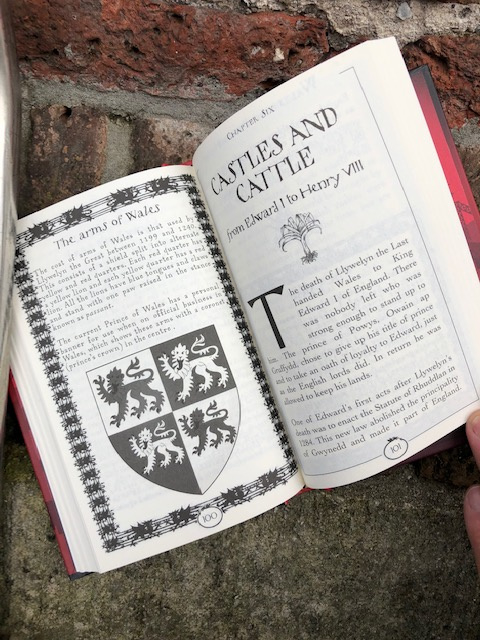 The arms of Wales
The coat of arms of Wales is that used by
Llywelyn the Great between 1199 and 1240.
This consists of a shield split into alternate
yellow and red quarters. Each red quarter has a
yellow lion and each yellow quarter has a red
lion. All the lions have blue tongues and claws
and stand with one paw raised in the stance
known as passant.
The current Prince of Wales has a personal
banner for use when on official business in
Wales, which shows these arms with a coronet
(prince's crown) in the centre.
100
CHAPTER SIX
CASTLES AND
CATTLE
from Edward I to Henry VIII
The death of Llywelyn the Last
handed Wales to King
Edward I of England. There
was nobody left who was
strong enough to stand up to
him. The prince of Powys, Owain ap
Gruffydd, chose to give up his title of prince
and to take an oath of loyalty to Edward, just
as the English lords did. In return he was
allowed to keep his lands.
One of Edward's first acts after Llywelyn's
death was to enact the Statute of Rhuddlan in
1284. This new law abolished the principality
of Gwynedd and made it part of England.
101